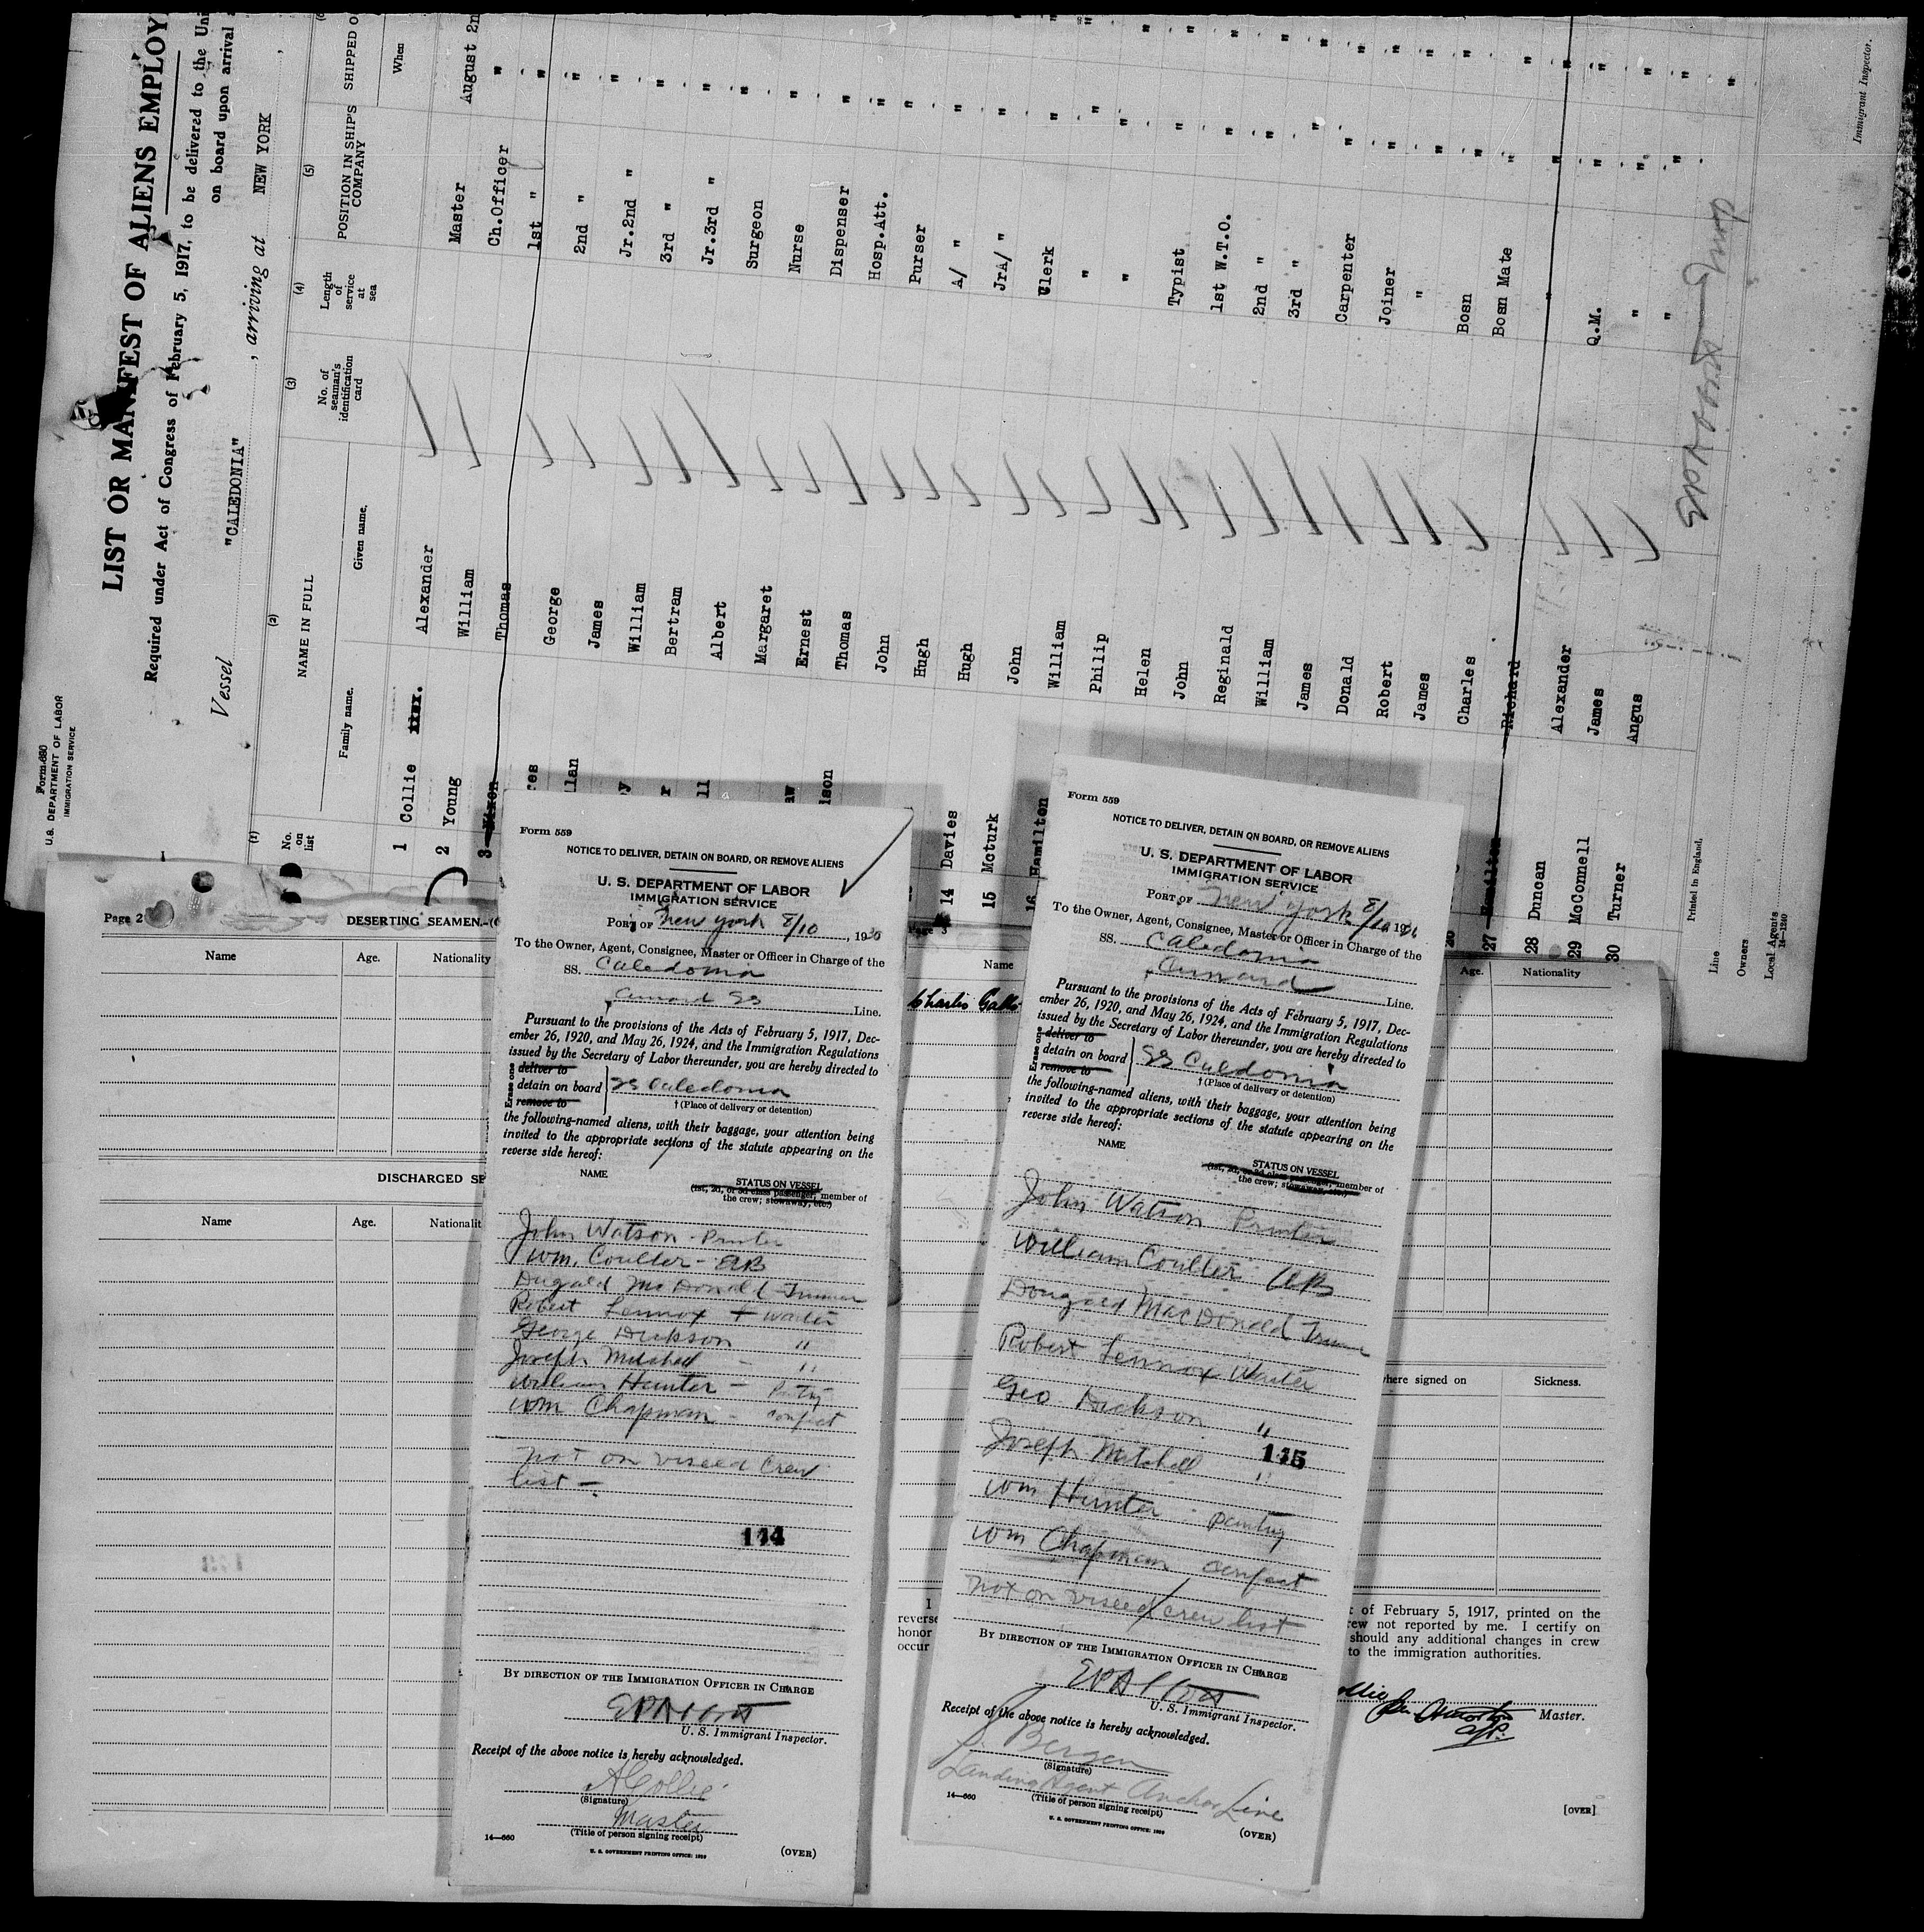 Form 680
U.S. DEPARTMENT OF LABOR
IMMIGRATION SERVICE
LIST OR MANIFEST OF ALIENS EMPLOY
Required under Act of Congress of February 5, 1917, to be delivered to the Uni
on board upon arrival
Vessel "CALEDONIA", arriving at NEW YORK
(1) (2) (3) (4) (5)
No. on list
NAME IN FULL
Family name. Given name.
No. of seaman's identification card
Length of service at sea
POSITION IN SHIP'S COMPANY
SHIPPED O
When
1 Collie Alexander Master August 2n
2 Young William Ch.Officer "
3 Nixon Thomas 1st " "
George 2nd " "
James Jr.2nd " "
William 3rd " "
Bertram Jr.3rd " "
Albert Surgeon "
Margaret Nurse "
Ernest Dispenser "
Thomas Hosp.Att. "
John Purser "
Hugh A/ " "
14 Davies Hugh JrA/ " "
15 Mcturk John Clerk "
16 Hamilton William " "
Philip " "
Helen Typist "
John 1st W.T.O. "
Reginald 2nd " "
William 3rd " "
James Carpenter "
Donald Joiner "
Robert " "
James Bosn "
Charles Bosn Mate "
27 Hamilton Richard " "
28 Duncan Alexander Q.M. "
29 McConnell James " "
30 Turner Angus " "
Line
Owners
Local Agents
14-1240
Printed in England.
Immigrant Inspector.
Page 2
DESERTING SEAMEN.
Name Age. Nationality
DISCHARGED SE
Name Age. Nationalit
Form 559
NOTICE TO DELIVER, DETAIN ON BOARD, OR REMOVE ALIENS
U. S. DEPARTMENT OF LABOR
IMMIGRATION SERVICE
PORT OF New York 8/10, 1930
To the Owner, Agent, Consignee, Master or Officer in Charge of the
SS. Caledonia
Cunard SS Line.
Pursuant to the provisions of the Acts of February 5, 1917, Dec-
ember 26, 1920, and May 26, 1924, and the Immigration Regulations
issued by the Secretary of Labor thereunder, you are hereby directed to
Erase one
deliver to
detain on board SS Caledonia
remove to
† (Place of delivery or detention)
the following-named aliens, with their baggage, your attention being
invited to the appropriate sections of the statute appearing on the
reverse side hereof:
NAME
STATUS ON VESSEL
(1st, 2d, or 3d class passenger, member of
the crew; stowaway, etc.)
John Watson - Printer
Wm. Coulter - AB
Dugald McDonald - Trimmer
Robert Lennox + Waiter
George Dickson "
Joseph Mitchell - "
William Hunter - Pantry
Wm Chapman - Confect
not on viseed crew
list -
114
BY DIRECTION OF THE IMMIGRATION OFFICER IN CHARGE
U. S. Immigrant Inspector.
Receipt of the above notice is hereby acknowledged.
A Collie
(Signature)
Master
(Title of person signing receipt)
14—660
U. S. GOVERNMENT PRINTING OFFICE: 1929
(OVER)
Page 3
Name
Charles
Form 559
NOTICE TO DELIVER, DETAIN ON BOARD, OR REMOVE ALIENS
U. S. DEPARTMENT OF LABOR
IMMIGRATION SERVICE
PORT OF New York 8/10 19
To the Owner, Agent, Consignee, Master or Officer in Charge of the
SS. Caledonia
Cunard Line.
Pursuant to the provisions of the Acts of February 5, 1917, Dec-
ember 26, 1920, and May 26, 1924, and the Immigration Regulations
issued by the Secretary of Labor thereunder, you are hereby directed to
Erase one
deliver to
detain on board SS Caledonia
remove to
† (Place of delivery or detention)
the following-named aliens, with their baggage, your attention being
invited to the appropriate sections of the statute appearing on the
reverse side hereof:
NAME
STATUS ON VESSEL
(1st, 2d, or 3d class passenger, member of
the crew; stowaway, etc.)
John Watson Printer
William Coulter AB
Dougald MacDonald
Robert Lennox Waiter
Geo Dickson "
Joseph Mitchell "
115
Wm Hunter - pantry
Wm Chapman confect
not on viseed crew list
BY DIRECTION OF THE IMMIGRATION OFFICER IN CHARGE
U. S. Immigrant Inspector.
Receipt of the above notice is hereby acknowledged.
Bergen
(Signature)
Landing Agent Anchor Line
(Title of person signing receipt)
14—660
U. S. GOVERNMENT PRINTING OFFICE: 1929
(OVER)
Age. Nationality
where signed on Sickness.
t of February 5, 1917, printed on the
rew not reported by me. I certify on
should any additional changes in crew
to the immigration authorities.
I
reverse
honor
occur
Master.
[OVER]